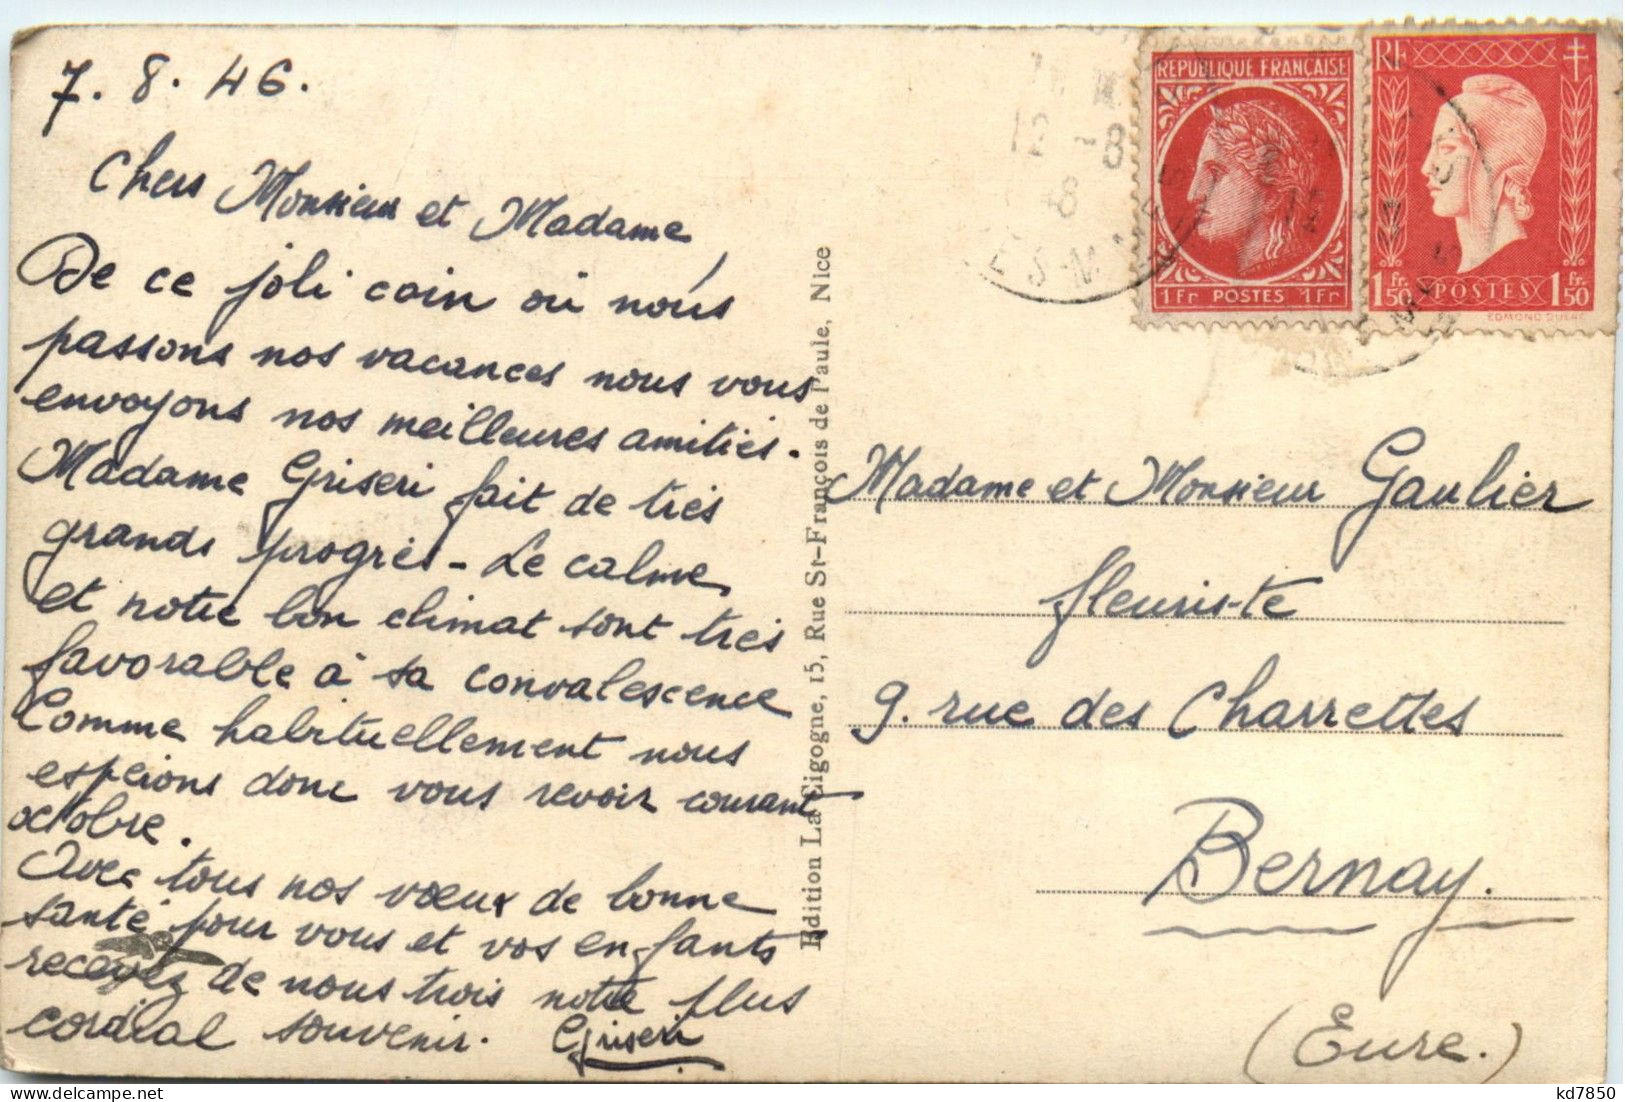 7.8.46.
Chers Monsieur et Madame,
De ce joli coin où nous
passons nos vacances nous vous
envoyons nos meilleures amitiés.
Madame Griseri fait de très
grands progrès - Le calme
et notre bon climat sont très
favorable à sa convalescence
Comme habituellement nous
espérons donc vous revoir courant
octobre.
Avec tous nos vœux de bonne
santé pour vous et vos enfants
recevez de nous trois notre plus
cordial souvenir. Griseri
Edition La Cigogne, 15, Rue St-François de Paule, Nice
REPUBLIQUE FRANÇAISE
1Fr POSTES 1Fr
RF
1Fr50 POSTES 1Fr50
EDMOND DULAC
12 -8
Madame et Monsieur Gaulier
fleuriste
9. rue des Charrettes
Bernay.
(Eure.)
kd7850